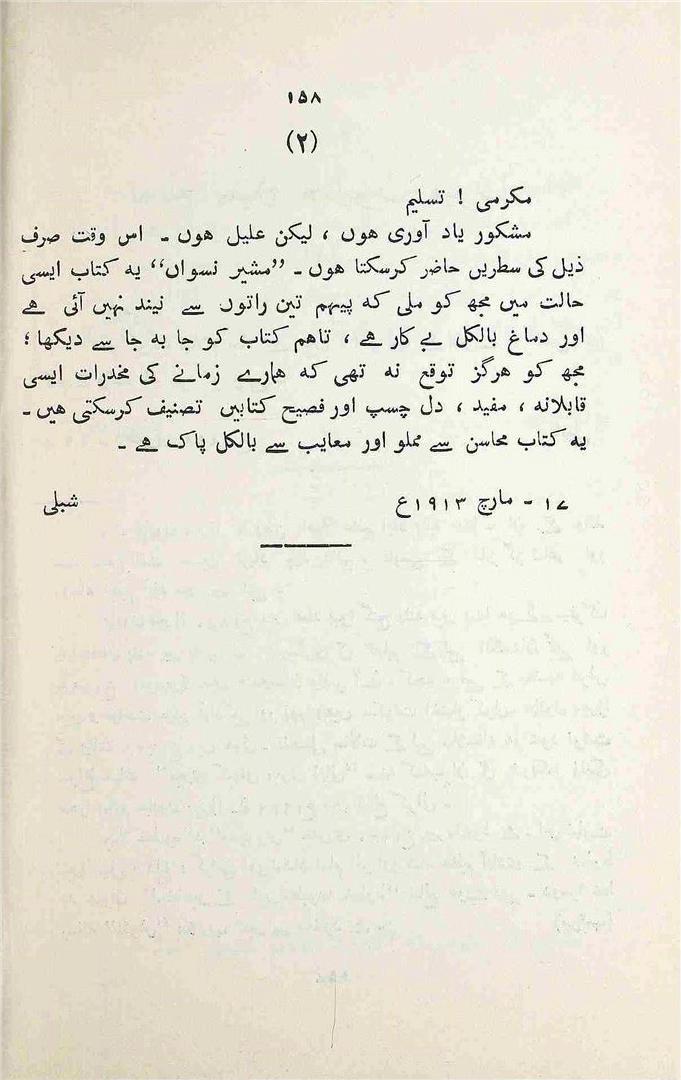 ۱۵۸
(۲)
مکرمی ! تسلیم
مشکور یاد آوری ہوں ، لیکن علیل ہوں ۔ اس وقت صرف
ذیل کی سطریں حاضر کرسکتا ہوں ۔ ”مشیر نسواں“ یہ کتاب ایسی
حالت میں مجھ کو ملی کہ پیہم تین راتوں سے نیند نہیں آئی ہے
اور دماغ بالکل بے کار ہے ، تاہم کتاب کو جا بہ جا سے دیکھا ؛
مجھ کو ہرگز توقع نہ تھی کہ ہمارے زمانے کی مخدرات ایسی
قابلانہ ، مفید ، دل چسپ اور فصیح کتابیں تصنیف کرسکتی ہیں ۔
یہ کتاب محاسن سے مملو اور معایب سے بالکل پاک ہے ۔
۱۷ - مارچ ۱۹۱۳ع شبلی